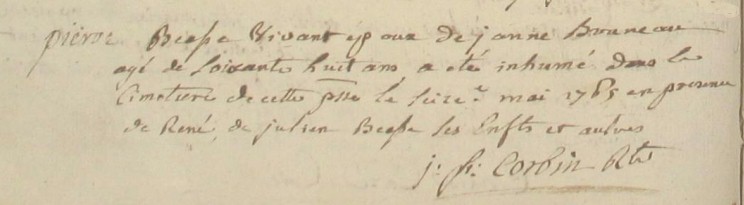 pierre Beasse vivant epoux de janne Bruneau
agé de soixante huit ans a eté inhumé dans le
Cimetiere de cette psse le seize mai 1785 en presence
de René, de julien Beasse les Enfts et autres
j: fr: Corbin Rtr